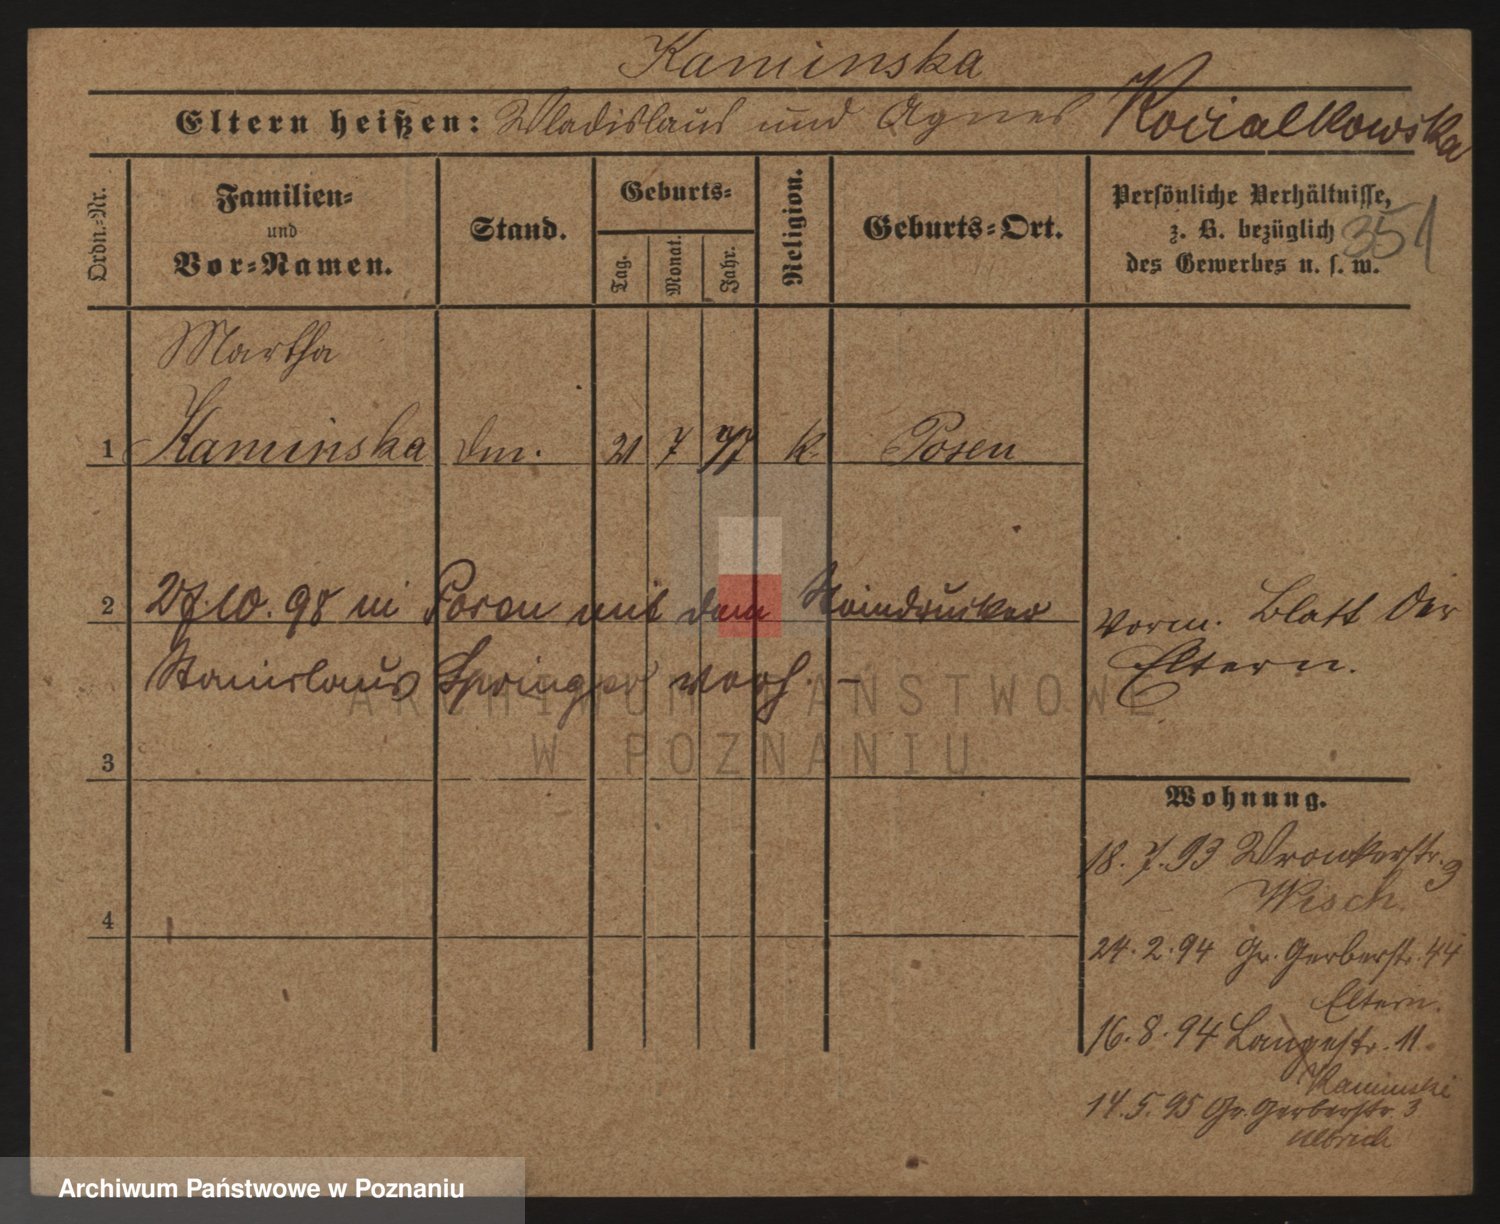 Kaminska
Eltern heißen: Wladislaus und Agnes Kocialkowska
Ordn.-Nr.
Familien- und Vor-Namen.
Stand.
Geburts-
Tag.
Monat.
Jahr.
Religion.
Geburts-Ort.
Persönliche Verhältnisse,
z. B. bezüglich
des Gewerbes u. s. w.
351
Martha
1 Kaminska 21 7 77 k. Posen
2 27.10.98 in Posen mit dem Steindrucker
Stanislaus Springer verh. –
vorm. Blatt der
Eltern.
3
4
Wohnung.
18.7.93 Wronkerstr. 9
Wisch.
24.2.94 Gr. Gerberstr. 44
Eltern.
16.8.94 Langestr. 11.
Kaminski
14.5.95 Gr. Gerberstr. 3
Ulbrich
ARCHIWUM PAŃSTWOWE
W POZNANIU
Archiwum Państwowe w Poznaniu